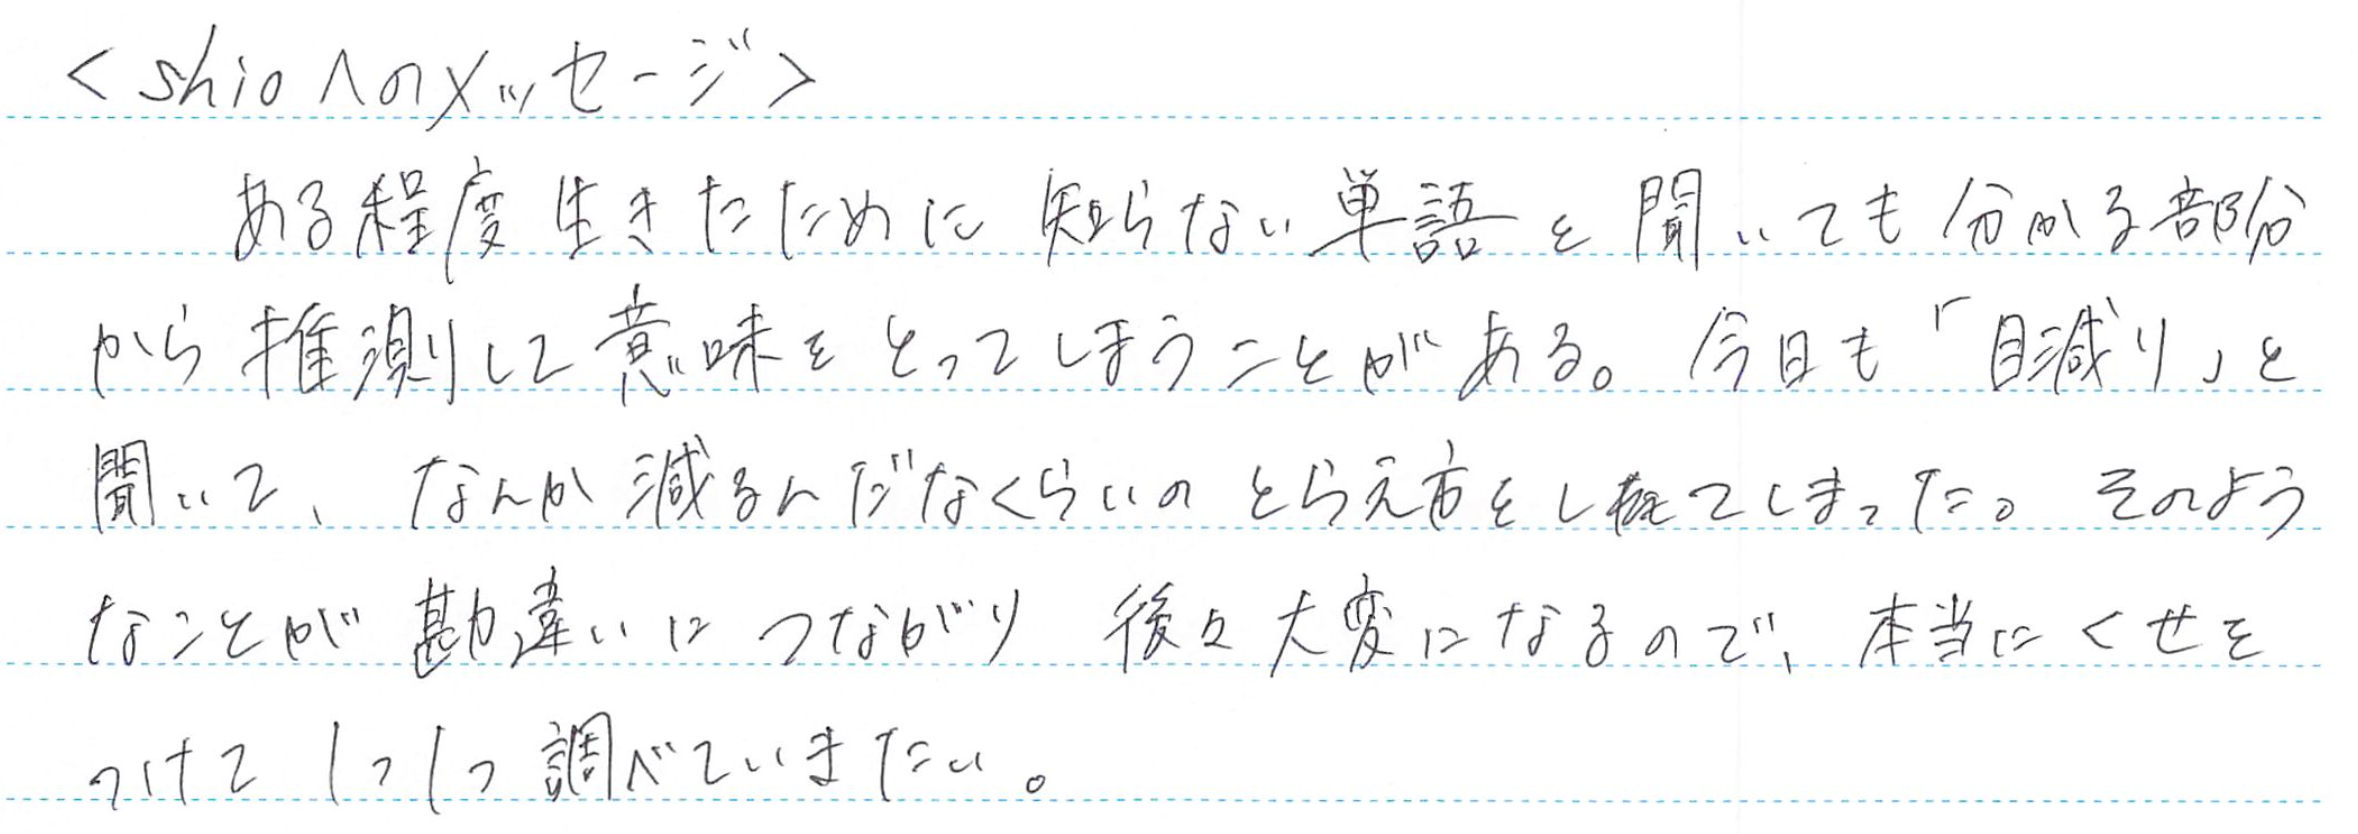 ＜shioへのメッセージ＞
ある程度生きたために知らない単語を聞いても分かる部分
から推測して意味をとってしまうことがある。今日も「目減り」と
聞いて、なんか減るんだなくらいのとらえ方をしてしまった。そのよう
なことが勘違いにつながり後々大変になるので、本当にくせを
つけて1つ1つ調べていきたい。